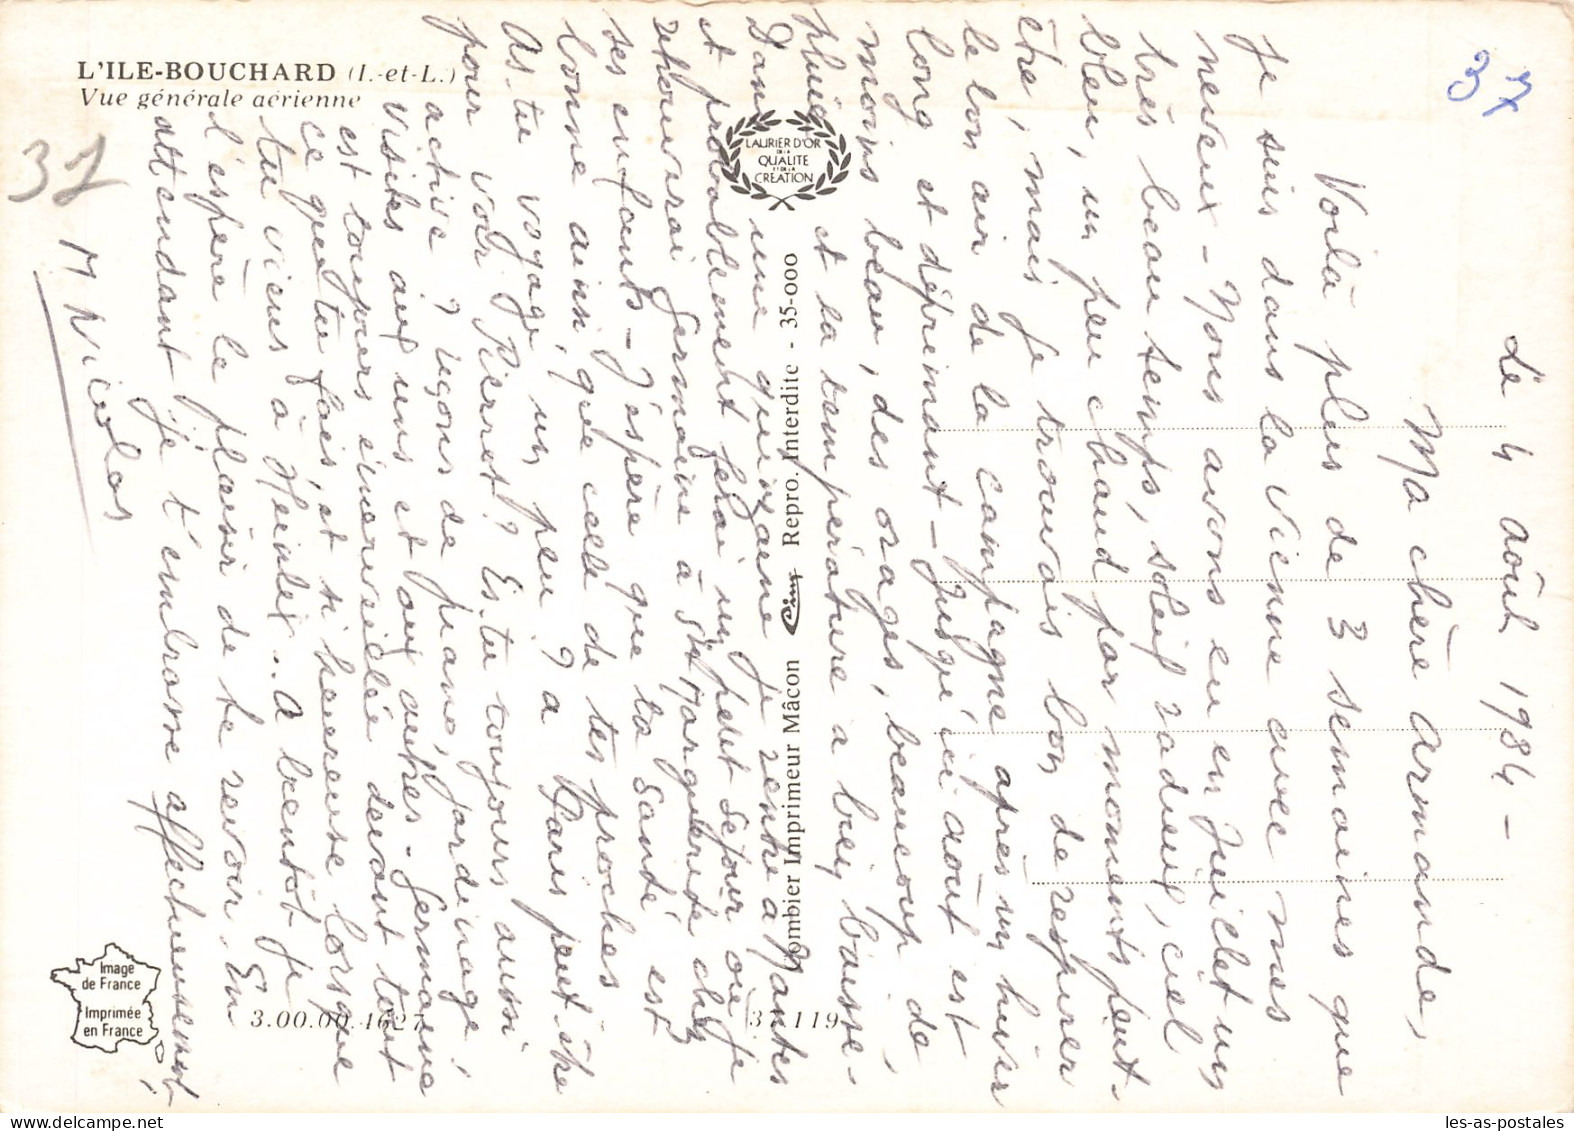 L'ILE-BOUCHARD (I.-et-L.)
Vue générale aérienne
37
37
LAURIER D'OR
DE LA
QUALITE
ET DE LA
CREATION
Combier Imprimeur Mâcon Cim Repro. Interdite - 35-000
Image
de France
Imprimée
en France
3.00.00.4627
37.119
Le 4 août 1984 -
Ma chère Armande,
Voilà plus de 3 semaines que
je suis dans la Vienne avec mes
neveux - Nous avons eu en Juillet un
très beau temps, soleil radieux, ciel
bleu, un peu chaud par moments peut-
être, mais je trouvais bon de respirer
le bon air de la campagne après un hiver
long et déprimant - Jusqu'ici août est
moins beau, des orages, beaucoup de
pluie et la température a bien baissé -
Dans une quinzaine je rentre à Nantes
et probablement ferai un petit séjour où je
retrouverai Germaine à Ste Marguerite chez
ses enfants - J'espère que ta santé est
bonne ainsi que celle de tes proches
As-tu voyagé un peu ? à Paris peut-être
pour voir Pierrot ? Es-tu toujours aussi
active ? leçons de piano, jardinage,
visites aux uns et aux autres - Germaine
est toujours émerveillée devant tout
ce que tu fais, et si heureuse lorsque
tu viens à .. A bientôt je
l'espère le plaisir de te revoir. En
attendant je t'embrasse affectueusement,
M Nicolas
les-as-postales